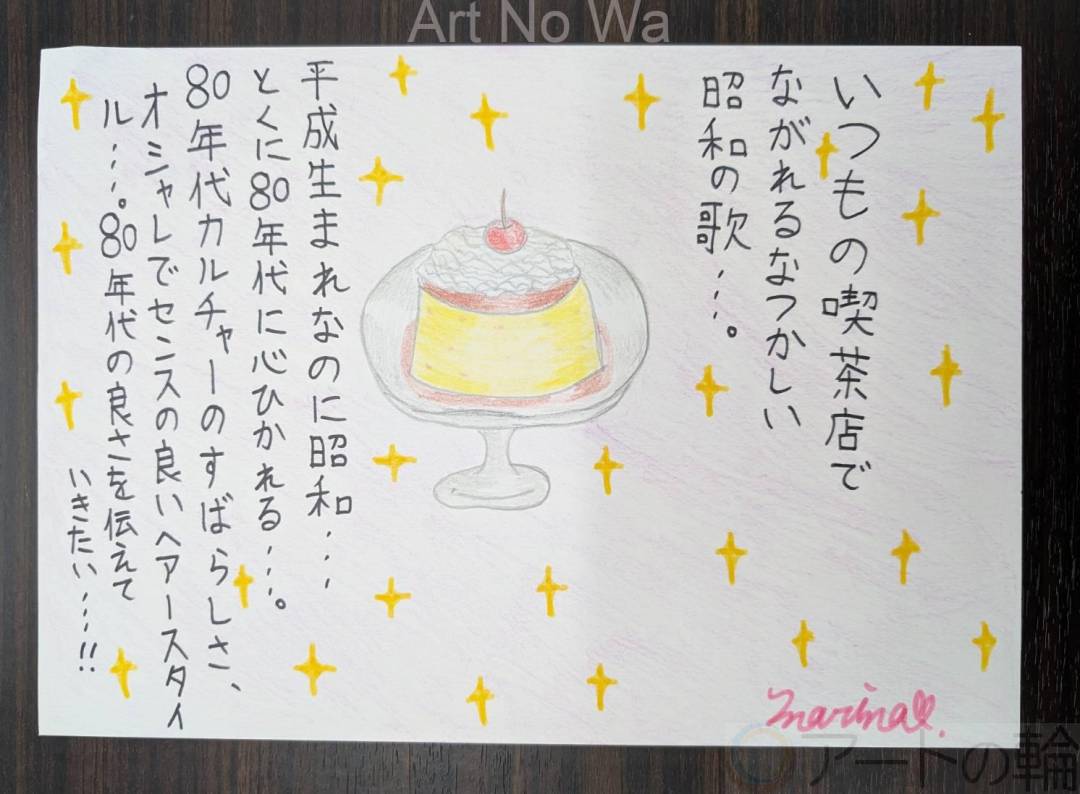 Art No Wa
いつもの喫茶店で
ながれるなつかしい
昭和の歌……。
平成生まれなのに昭和……
とくに80年代に心ひかれる……。
80年代カルチャーのすばらしさ、
オシャレでセンスの良いヘアースタイ
ル……。80年代の良さを伝えて
いきたい……!!
marinall.
アートの輪